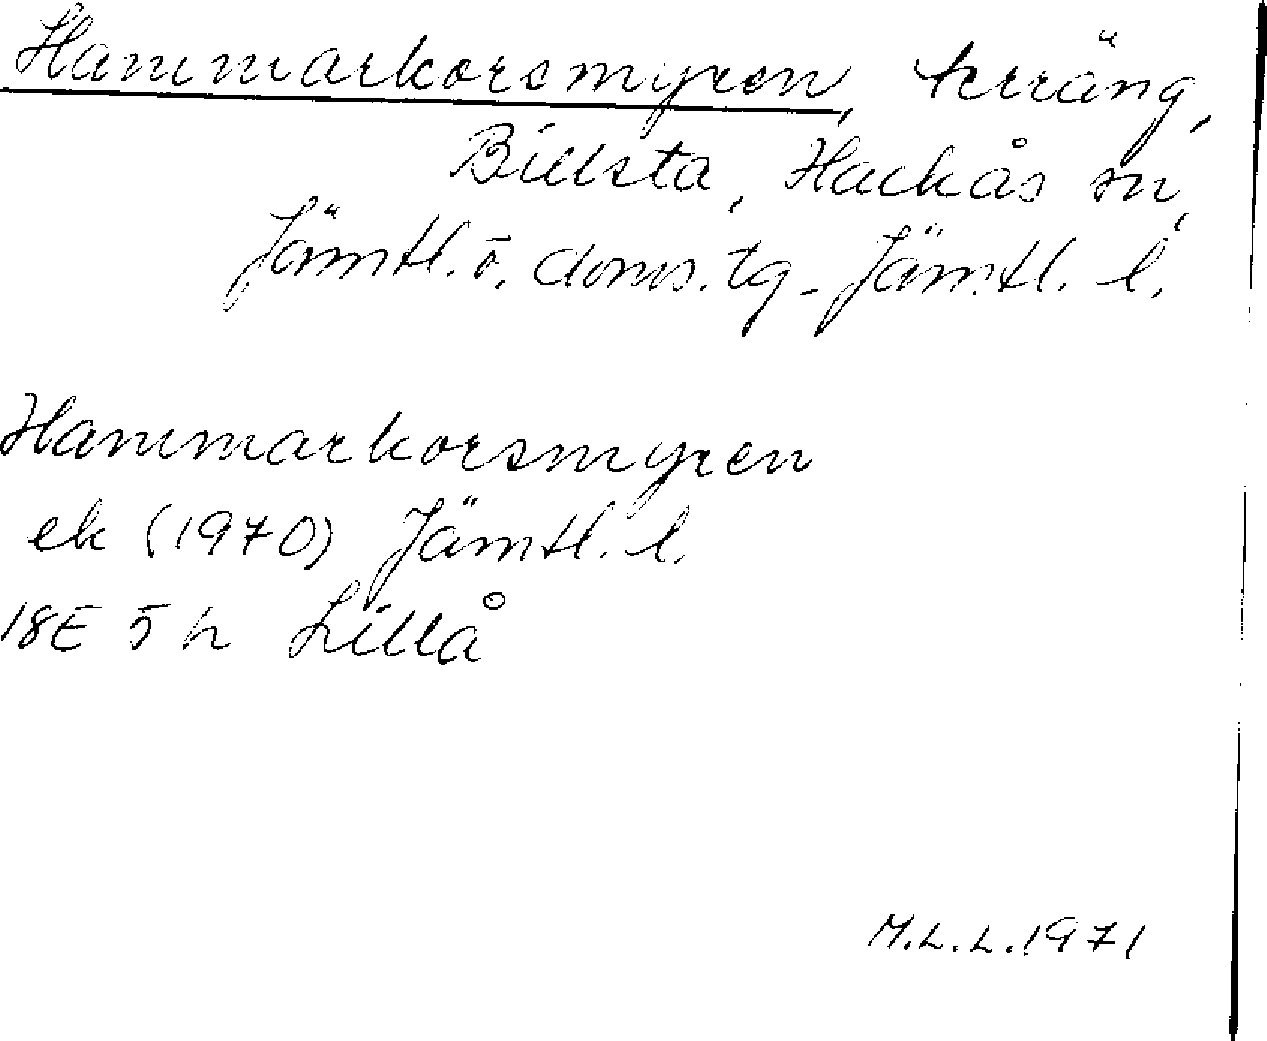 Hammarkorsmyren, terräng,
Billsta, Hackås sn,
Jämtl. ö. doms. tg. Jämtl. l.
Hammarkorsmyren
ek (1970) Jämtl. l.
18E 5 h Lillå
M.L.L. 1971